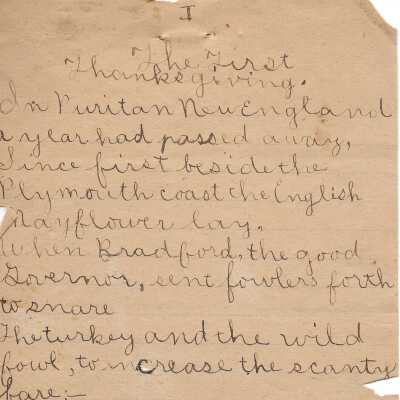 I
The First
Thanksgiving.
In Puritan New England
a year had passed away,
Since first beside the
Plymouth coast the English
Mayflower lay,
When Bradford, the good
Governor, sent fowlers forth
to snare
The turkey and the wild
fowl, to increase the scanty
fare:—